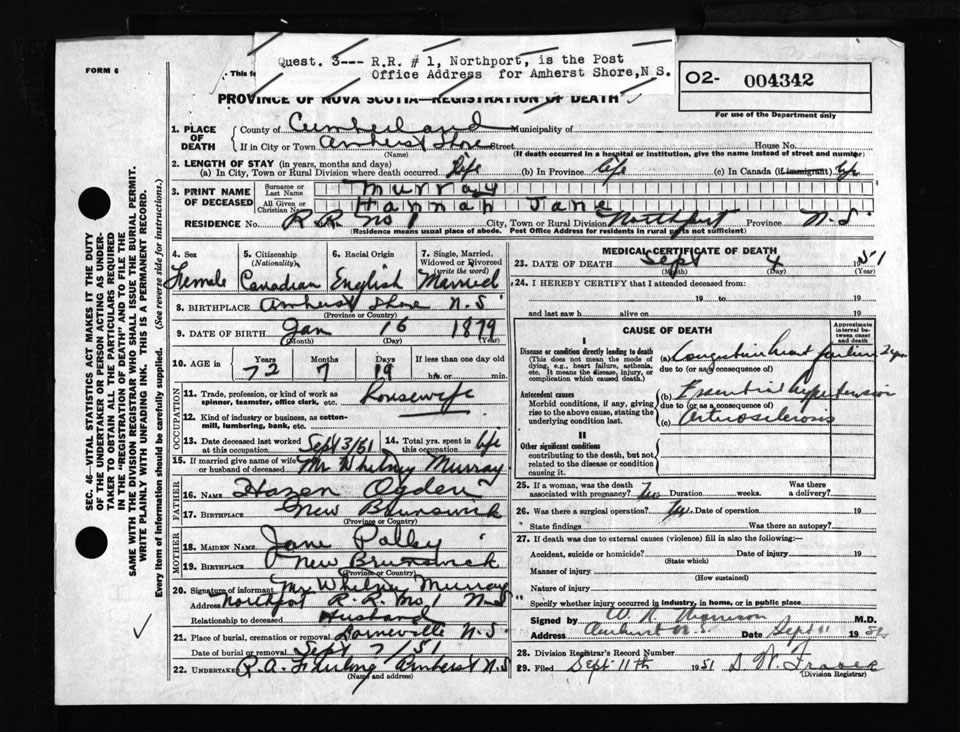 FORM 6
Quest. 3--- R.R. # 1, Northport, is the Post
Office Address for Amherst Shore, N S.
This fo
O2- 004342
For use of the Department only
PROVINCE OF NOVA SCOTIA—REGISTRATION OF DEATH
1. PLACE OF DEATH { County of Cumberland Municipality of
If in City or Town Amherst Shore Street House No.
(Name) (If death occurred in a hospital or institution, give the name instead of street and number)
2. LENGTH OF STAY (in years, months and days)
(a) In City, Town or Rural Division where death occurred life (b) In Province life (c) In Canada (if immigrant) life
3. PRINT NAME OF DECEASED { Surname or Last Name Murray
All Given or Christian Names Hannah Jane
RESIDENCE No. R.R. No 1 City, Town or Rural Division Northport Province N-S
(Residence means usual place of abode. Post Office Address for residents in rural parts not sufficient)
4. Sex Female
5. Citizenship (Nationality) Canadian
6. Racial Origin English
7. Single, Married, Widowed or Divorced (write the word) Married
8. BIRTHPLACE Amherst Shore N.S
(Province or Country)
9. DATE OF BIRTH Jan 16 1879
(Month) (Day) (Year)
10. AGE in Years 72 Months 7 Days 19 If less than one day old hrs. or min.
OCCUPATION
11. Trade, profession, or kind of work as spinner, teamster, office clerk, etc. Housewife
12. Kind of industry or business, as cotton-mill, lumbering, bank, etc.
13. Date deceased last worked at this occupation Sept 3/51 14. Total yrs. spent in this occupation life
15. If married give name of wife or husband of deceased Mr Whitney Murray
FATHER
16. NAME Hazen Ogden
17. BIRTHPLACE New Brunswick
(Province or Country)
MOTHER
18. MAIDEN NAME Jane Polley
19. BIRTHPLACE New Brunswick
(Province or Country)
20. Signature of informant Mr Whitney Murray
Address Northport R.R. No 1 N-S
Relationship to deceased Husband
21. Place of burial, cremation or removal Lorneville N.S
Date of burial or removal Sept 7/51
22. UNDERTAKER R.A. Furlong Amherst N.S
(Name and address)
MEDICAL CERTIFICATE OF DEATH
23. DATE OF DEATH Sept 4 1951
(Month) (Day) (Year)
24. I HEREBY CERTIFY that I attended deceased from:
19 to 19
and last saw h alive on 19
CAUSE OF DEATH
Approximate interval between onset and death
I
Disease or condition directly leading to death
(This does not mean the mode of dying, e.g., heart failure, asthenia, etc. It means the disease, injury, or complication which caused death.)
(a) Congestive heart failure 2 yrs
due to (or as a consequence of)
Antecedent causes
Morbid conditions, if any, giving rise to the above cause, stating the underlying condition last.
(b) Essential hypertension
due to (or as a consequence of)
(c) Arteriosclerosis
II
Other significant conditions contributing to the death, but not related to the disease or condition causing it.
25. If a woman, was the death associated with pregnancy? No Duration weeks. Was there a delivery?
26. Was there a surgical operation? No Date of operation 19
State findings Was there an autopsy?
27. If death was due to external causes (violence) fill in also the following:—
Accident, suicide or homicide? Date of injury 19
(State which)
Manner of injury
(How sustained)
Nature of injury
Specify whether injury occurred in industry, in home, or in public place
Signed by W. R. Morrison M.D.
Address Amherst N.S. Date Sept 11 1951
28. Division Registrar's Record Number
29. Filed Sept 11th 1951 D. W. Fraser
(Division Registrar)
SEC. 46—VITAL STATISTICS ACT MAKES IT THE DUTY
OF THE UNDERTAKER OR PERSON ACTING AS UNDER-
TAKER TO OBTAIN ALL THE PARTICULARS REQUIRED
IN THE "REGISTRATION OF DEATH" AND TO FILE THE
SAME WITH THE DIVISION REGISTRAR WHO SHALL ISSUE THE BURIAL PERMIT.
WRITE PLAINLY WITH UNFADING INK. THIS IS A PERMANENT RECORD.
Every item of information should be carefully supplied. (See reverse side for instructions.)